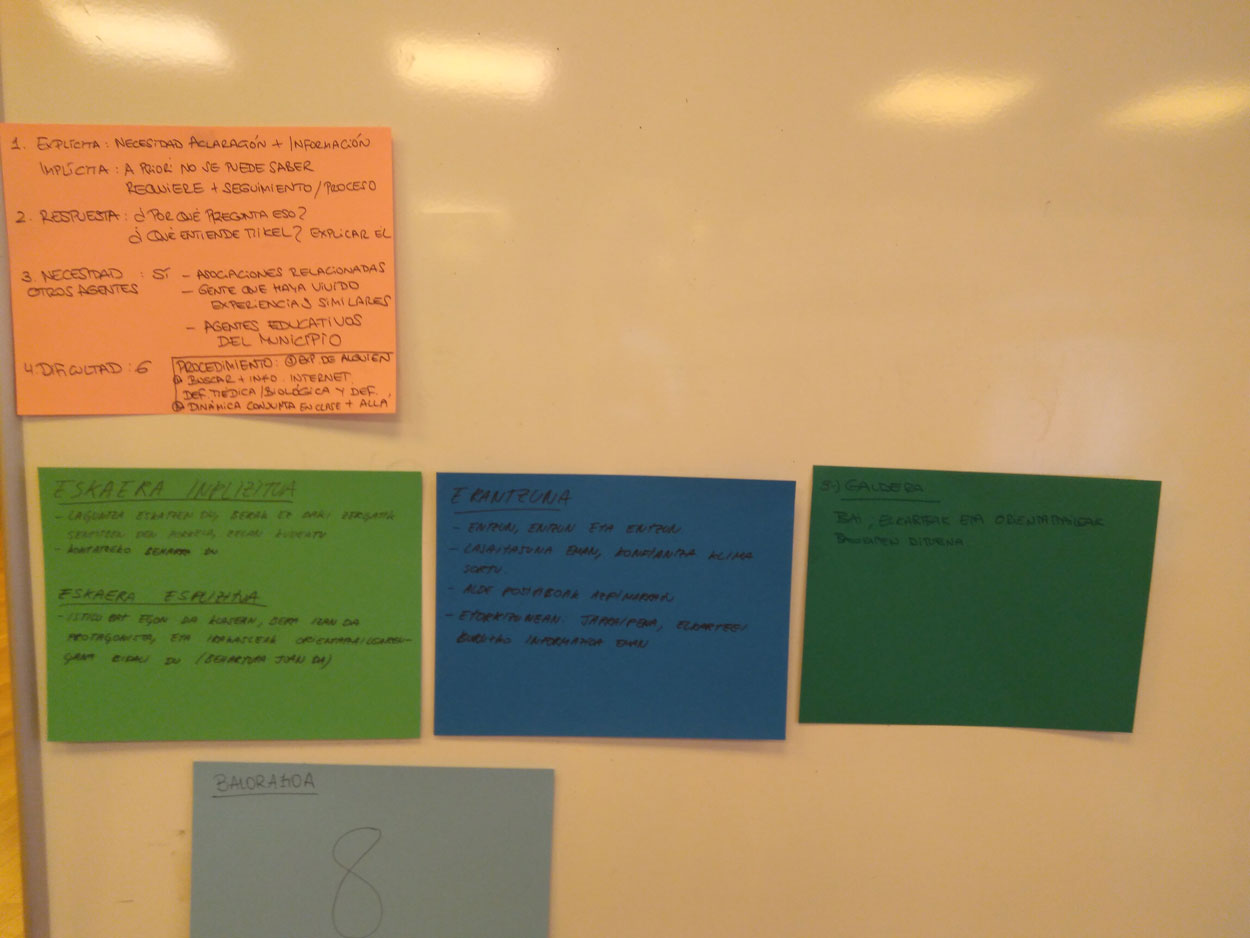 1. EXPLÍCITA: NECESIDAD ACLARACIÓN + INFORMACIÓN
IMPLÍCITA: A PRIORI NO SE PUEDE SABER
REQUIERE + SEGUIMIENTO/PROCESO
2. RESPUESTA: ¿POR QUÉ PREGUNTA ESO?
¿QUÉ ENTIENDE MIKEL? EXPLICAR EL
3. NECESIDAD : SÍ - ASOCIACIONES RELACIONADAS
OTROS AGENTES - GENTE QUE HAYA VIVIDO
EXPERIENCIAS SIMILARES
- AGENTES EDUCATIVOS
DEL MUNICIPIO
4. DIFICULTAD: 6
PROCEDIMIENTO: EXP. DE ALGUIEN
BUSCAR + INFO. INTERNET
DEF. MÉDICA/BIOLÓGICA Y DEF.
DINÁMICA CONJUNTA EN CLASE + ALLÁ
ESKAERA INPLIZITUA
- LAGUNTZA ESKATZEN DU, BERAK EZ DAKI ZERGATIK
SENTITZEN DEN HORRELA, ZEGAN KUDEATU
- KONTATZEKO BEHARRA DU
ESKAERA ESPLIZITUA
- ISTILU BAT EGON DA KLASEAN, BERA IZAN DA
PROTAGONISTA, ETA IRAKASLEAK ORIENTATZAILEAREN-
GANA BIDALI DU (BEHARTUTA JOAN DA)
ERANTZUNA
- ENTZUN, ENTZUN ETA ENTZUN
- LASAITASUNA EMAN, KONFIANTZA KLIMA
SORTU
- ALDE POSITIBOAK AZPIMARRATU
- ETORKIZUNEAN: JARRAIPENA, ELKARTEEI
BURUZKO INFORMAZIOA EMAN
3-) GALDERA
BAI, ELKARTEAK ETA ORIENTATZAILEAK
BALORAZIOA
8